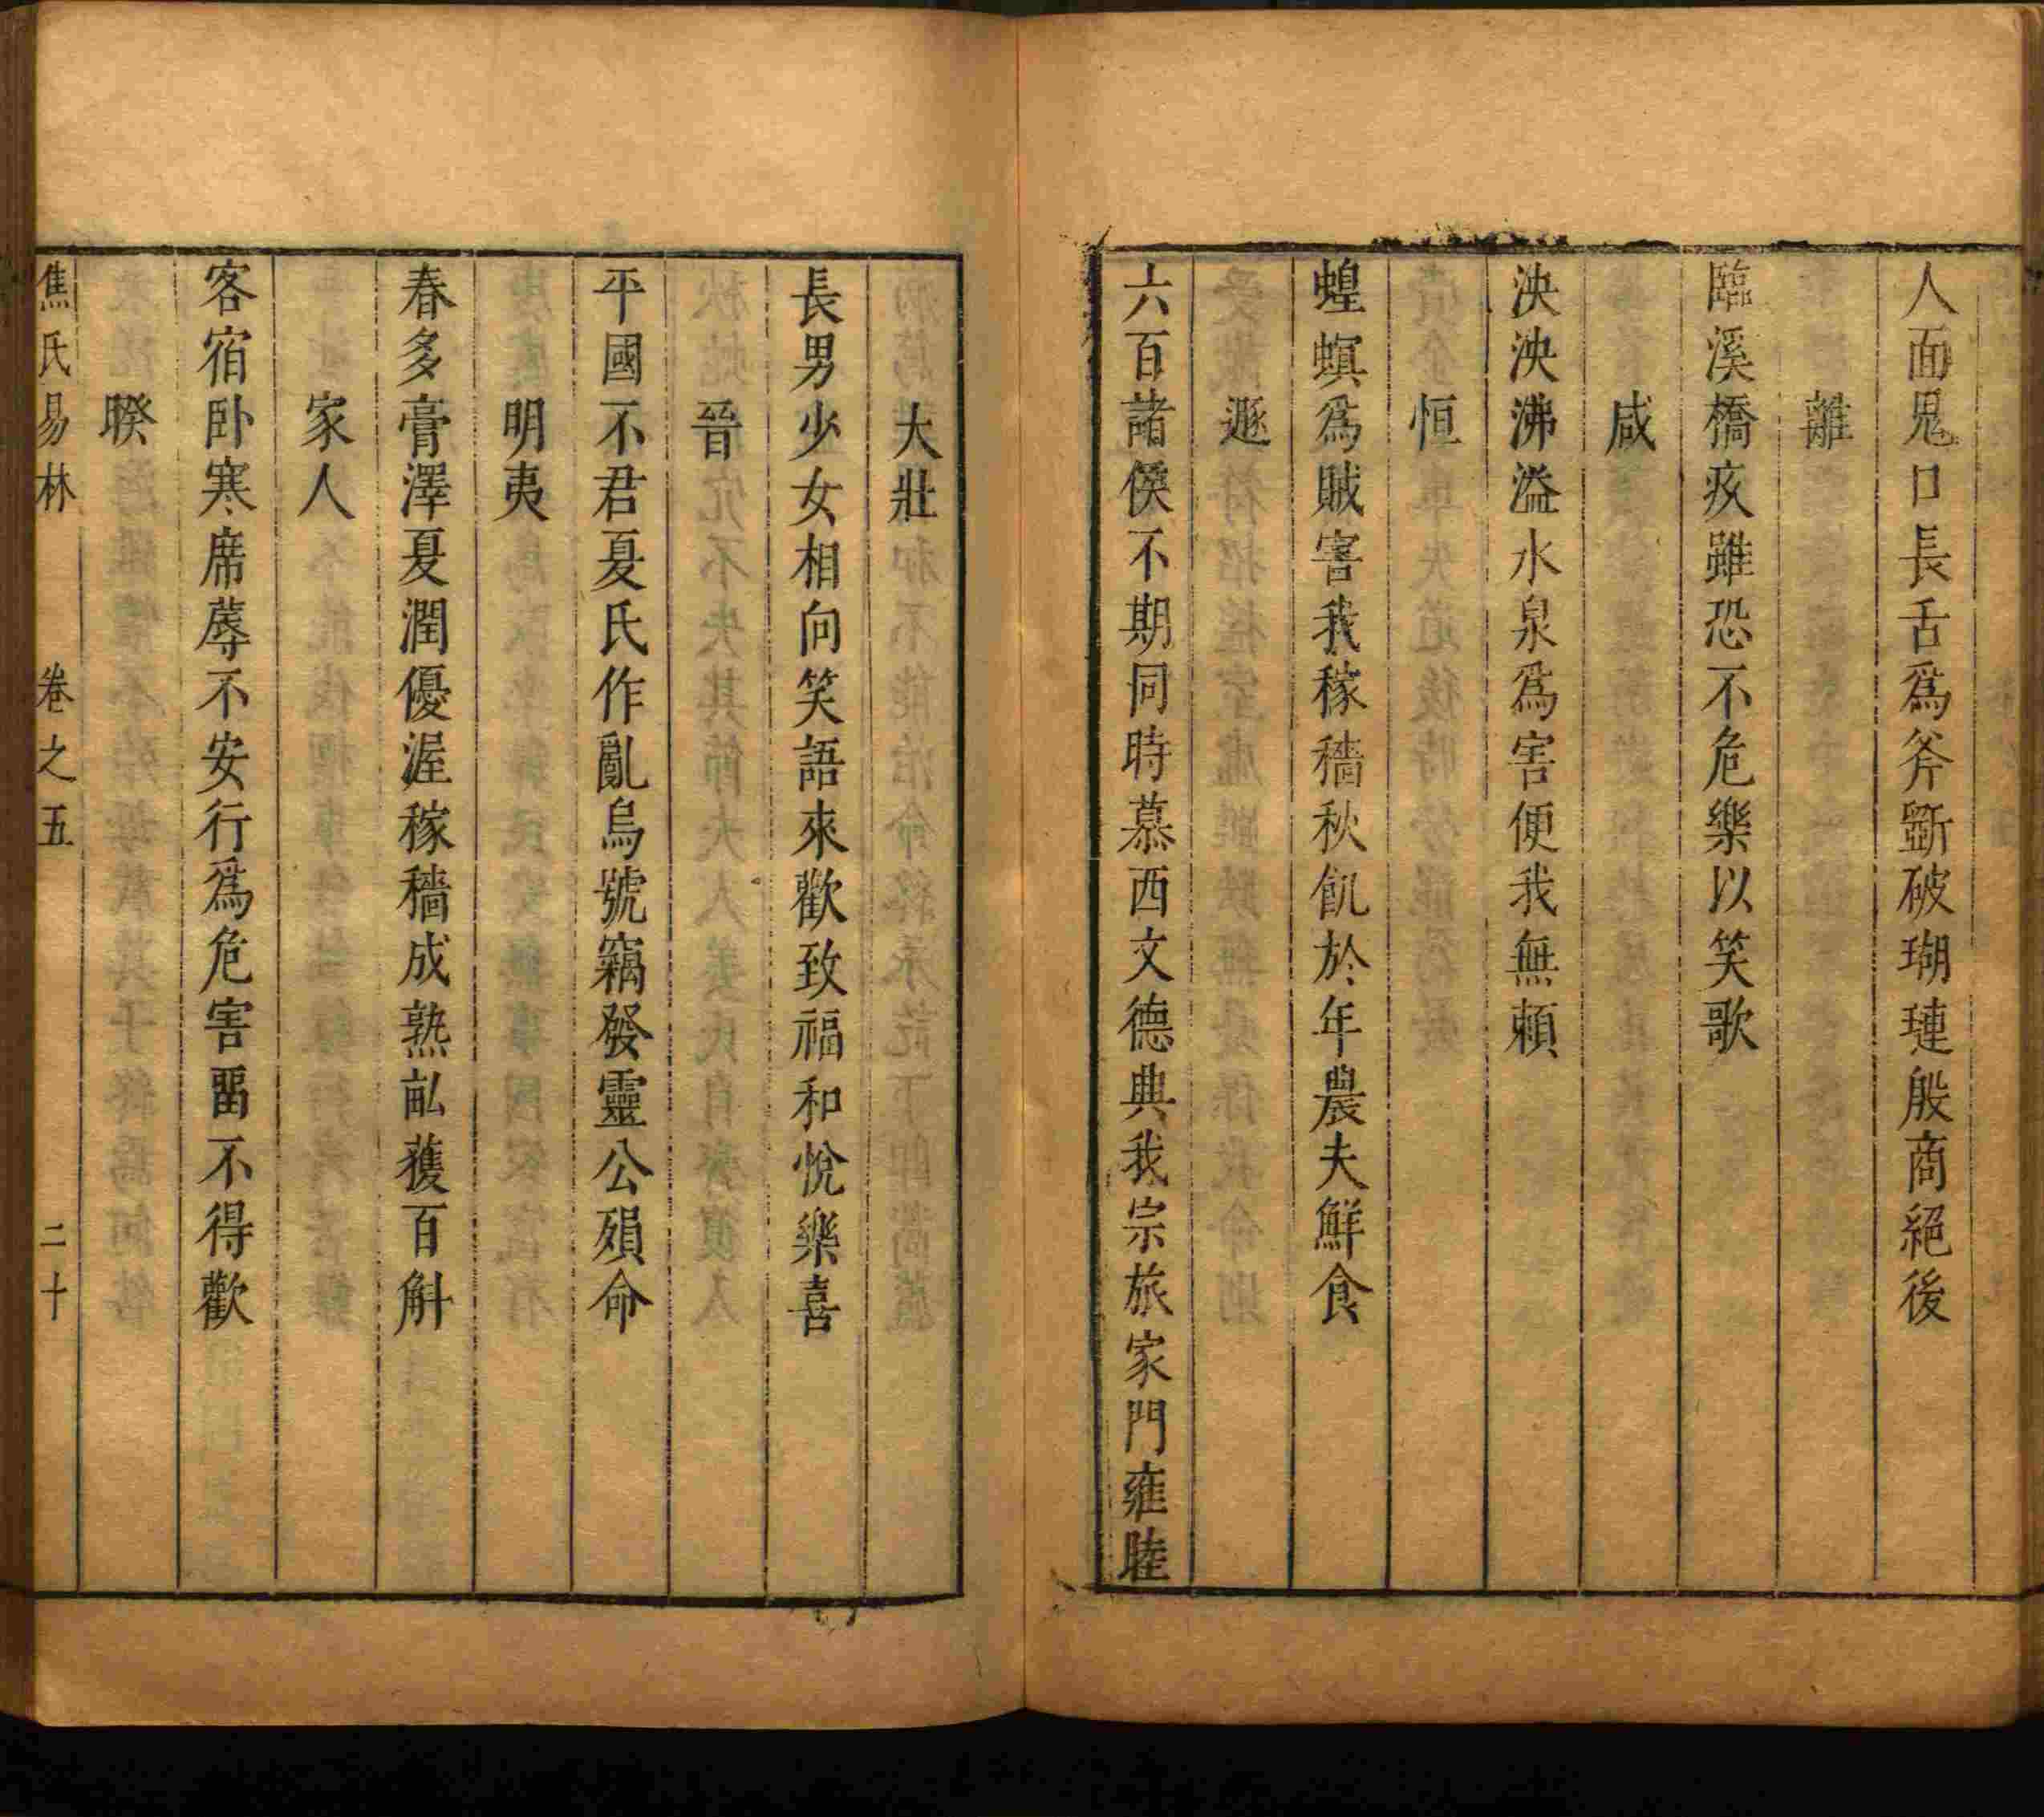 人面鬼口長舌爲斧斲破瑚璉殷商絕後
離
臨溪橋疚雖恐不危樂以笑歌
咸
泱泱沸溢水泉爲害便我無賴
恒
蝗螟爲賊害我稼穡秋飢於年農夫鮮食
遯
六百諸侯不期同時慕西文德典我宗旅家門雍睦
大壯
長男少女相向笑語來歡致福和悅樂喜
晉
平國不君夏氏作亂烏號竊發靈公殞命
明夷
春多膏澤夏潤優渥稼穡成熟畝獲百斛
家人
客宿卧寒席蓐不安行爲危害畱不得歡
睽
焦氏易林 卷之五 二十